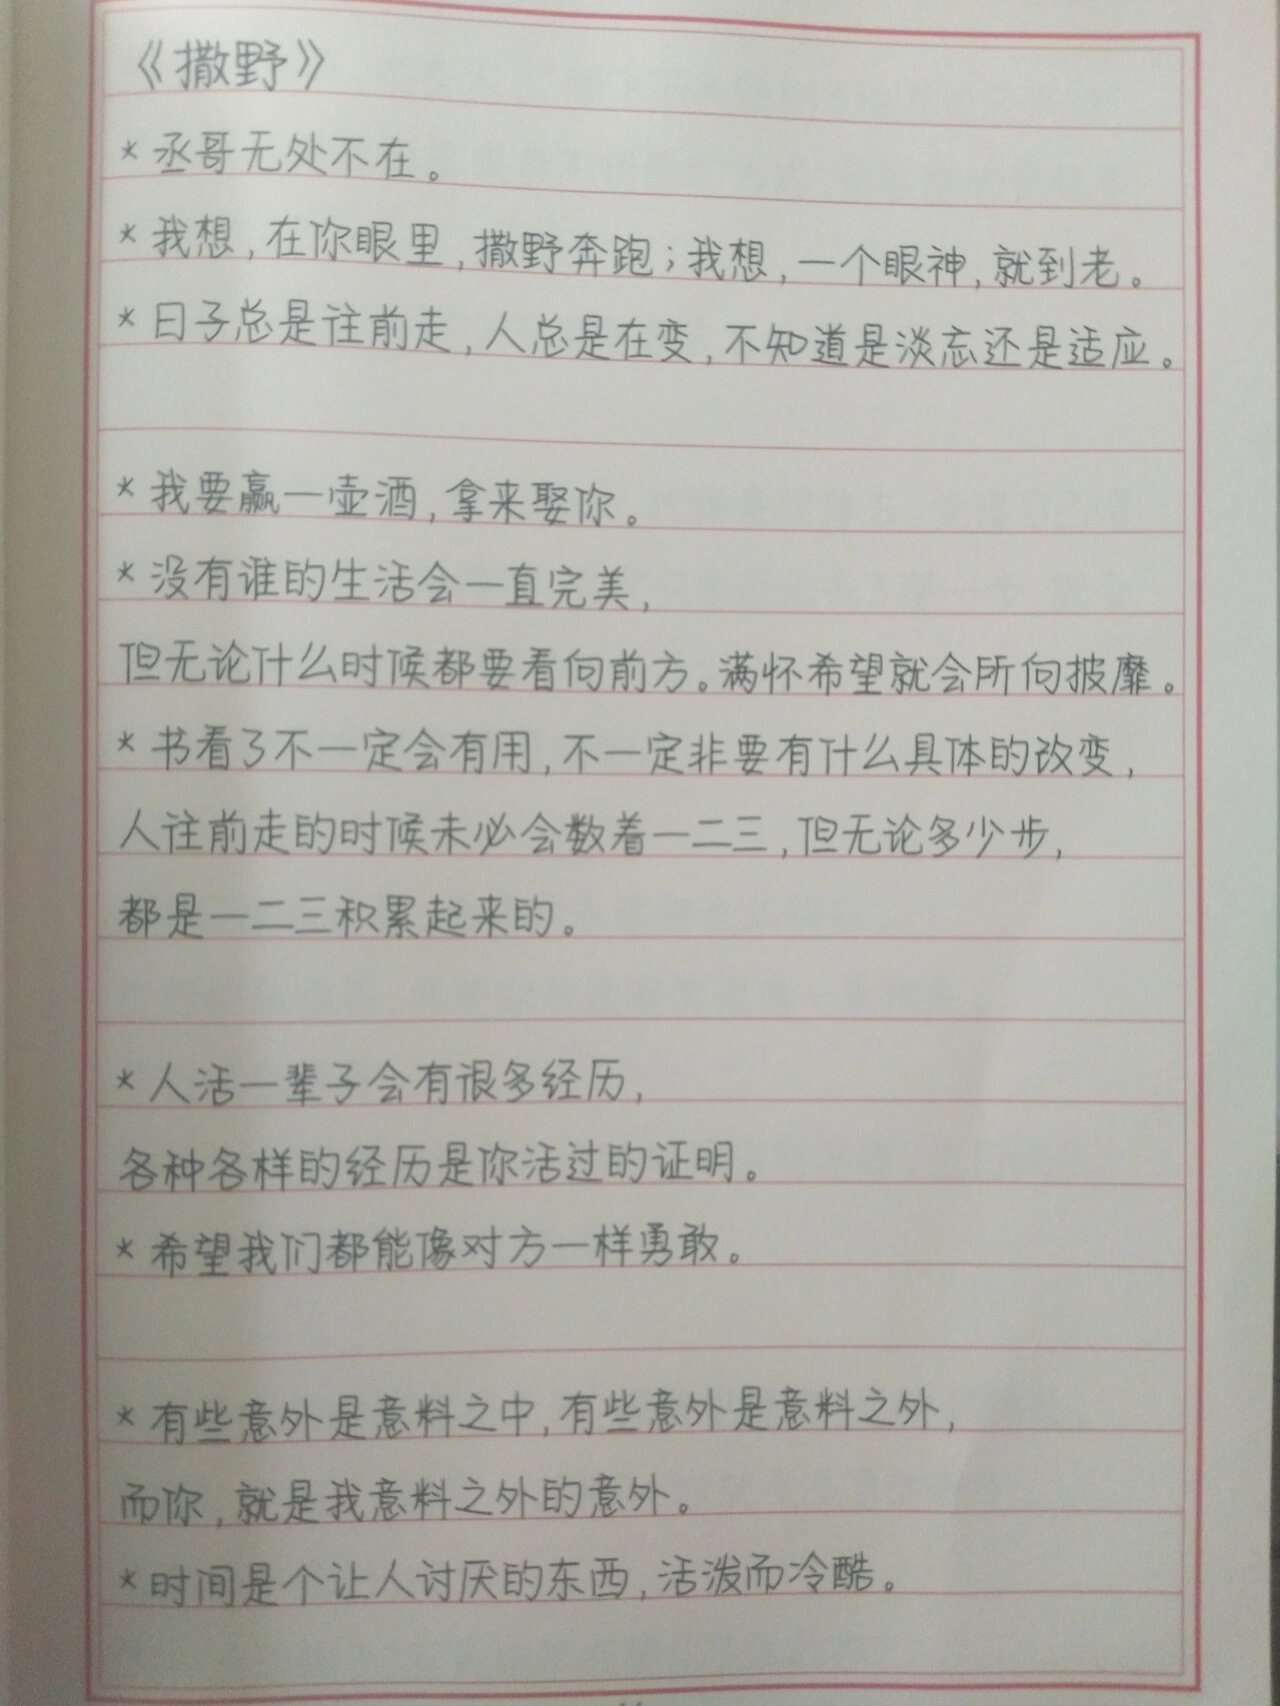 《撒野》
* 丞哥无处不在。
* 我想,在你眼里,撒野奔跑;我想,一个眼神,就到老。
* 日子总是往前走,人总是在变,不知道是淡忘还是适应。
* 我要赢一壶酒,拿来娶你。
* 没有谁的生活会一直完美,
但无论什么时候都要看向前方。满怀希望就会所向披靡。
* 书看了不一定会有用,不一定非要有什么具体的改变,
人往前走的时候未必会数着一二三,但无论多少步,
都是一二三积累起来的。
* 人活一辈子会有很多经历,
各种各样的经历是你活过的证明。
* 希望我们都能像对方一样勇敢。
* 有些意外是意料之中,有些意外是意料之外,
而你,就是我意料之外的意外。
* 时间是个让人讨厌的东西,活泼而冷酷。